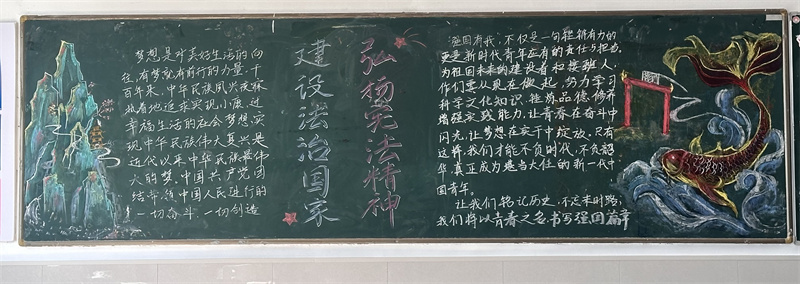 梦想是对美好生活的向
往,有梦就有前行的力量,千
百年来,中华民族夙兴夜寐
执着地追求实现小康,过
幸福生活的社会梦想,实
现中华民族伟大复兴是
近代以来中华民族最伟
大的梦,中国共产党团
结带领中国人民进行的
一切奋斗、一切创造
建设法治国家
弘扬宪法精神
强国有我,不仅是一句铿锵有力的
更是新时代青年应有的责任与担当,
为祖国未来的建设者和接班人,
作们要从现在做起,努力学习
科学文化知识,锤炼品德修养
增强实践能力,让青春在奋斗中
闪光,让梦想在实干中绽放,只有
这样,我们才能不负时代,不负韶
华,真正成为堪当大任的新一代中
国青年。
让我们铭记历史,不忘来时路,
我们将以青春之名,书写强国篇章